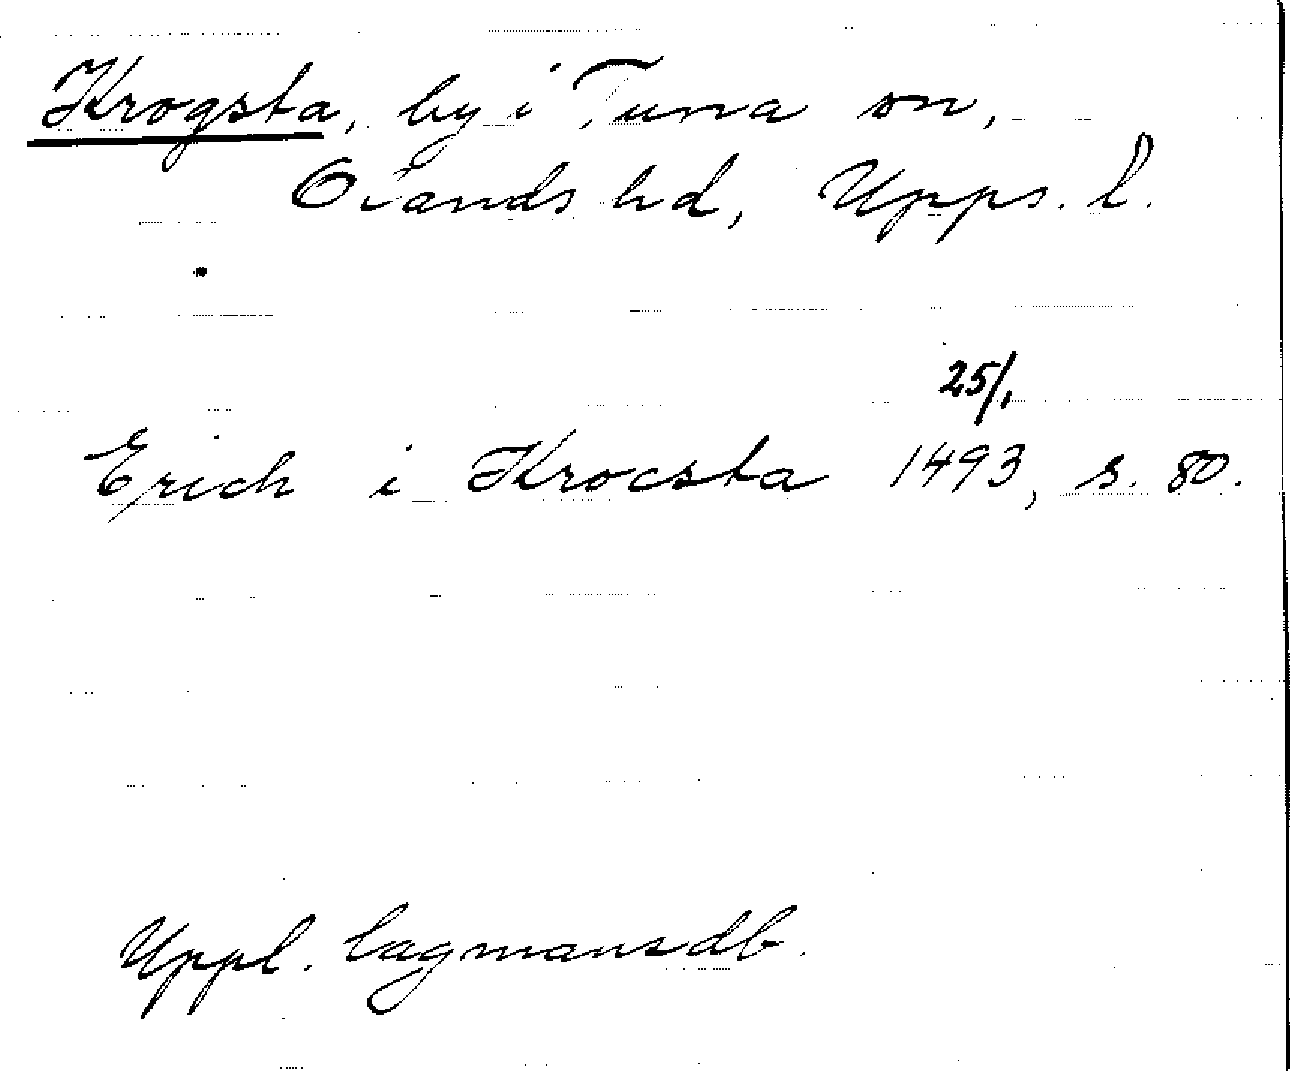 Krogsta, by i Tuna sn,
Olands hd, Upps. l.
25/1
Erich i Krocsta 1493, s. 80.
Uppl. lagmansdb.